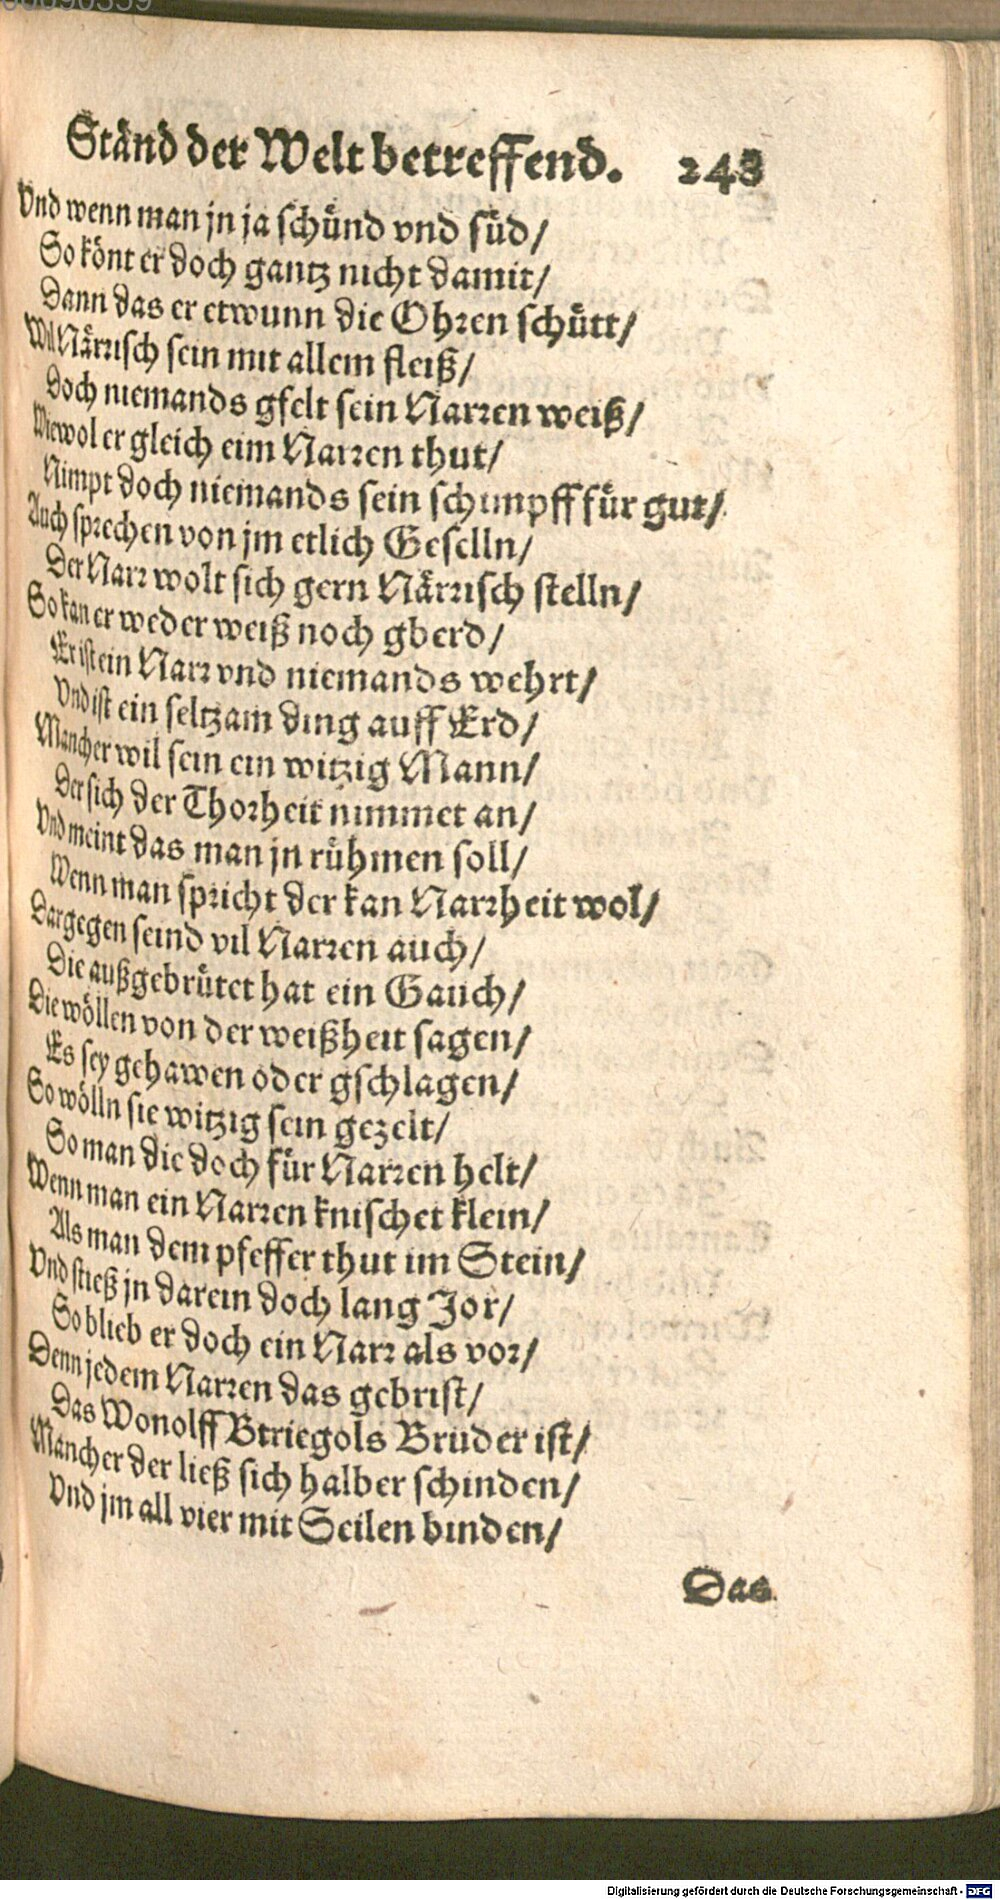 00090359
Ständ der Welt betreffend. 243
Vnd wenn man jn ja schünd vnd süd/
So könt er doch gantz nicht damit/
Dann das er etwunn die Ohren schütt/
Wil Närrisch sein mit allem fleiß/
Doch niemands gfelt sein Narren weiß/
Wiewol er gleich eim Narren thut/
Nimpt doch niemands sein schimpff für gut/
Auch sprechen von jm etlich Geselln/
Der Narr wolt sich gern Närrisch stelln/
So kan er weder weiß noch gberd/
Er ist ein Narr vnd niemands wehrt/
Vnd ist ein seltzam ding auff Erd/
Mancher wil sein ein witzig Mann/
Der sich der Thorheit nimmet an/
Vnd meint das man jn rühmen soll/
Wenn man spricht der kan Narrheit wol/
Dargegen seind vil Narren auch/
Die außgebrütet hat ein Gauch/
Die wöllen von der weißheit sagen/
Es sey gehawen oder gschlagen/
So wölln sie witzig sein gezelt/
So man die doch für Narren helt/
Wenn man ein Narren knischet klein/
Als man dem pfeffer thut im Stein/
Vnd stieß jn darein doch lang Jor/
So blieb er doch ein Narr als vor/
Denn jedem Narren das gebrist/
Das Wonolff Btriegols Bruder ist/
Mancher der ließ sich halber schinden/
Vnd jm all vier mit Seilen binden/
Das
Digitalisierung gefördert durch die Deutsche Forschungsgemeinschaft - DFG